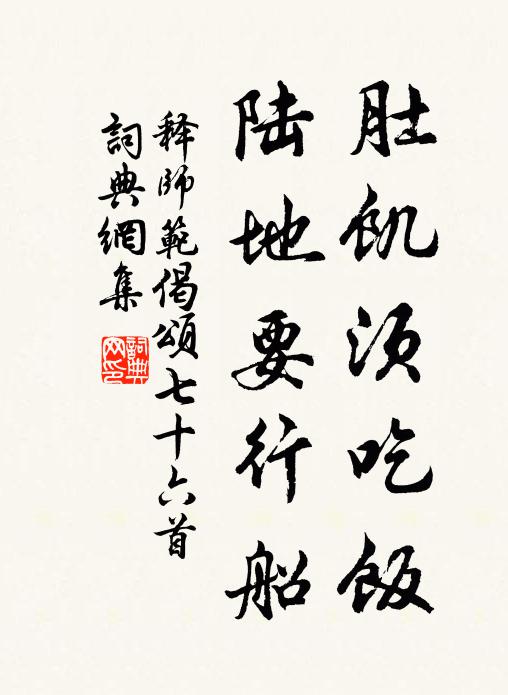 肚飢须吃飯
陆地要行船
释師範偈頌七十六首
詞典網集
詞典网印